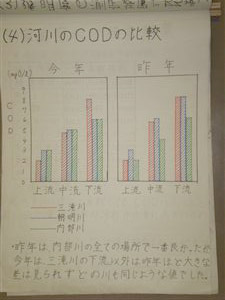 (4)河川のCODの比較
今年
昨年
(mg/ℓ)
COD
上流 中流 下流
上流 中流 下流
三滝川
朝明川
内部川
・昨年は、内部川の全ての場所で一番良かったが
今年は、三滝川の下流以外は昨年ほど大きな
差は見られずどの川も同じような値でした。